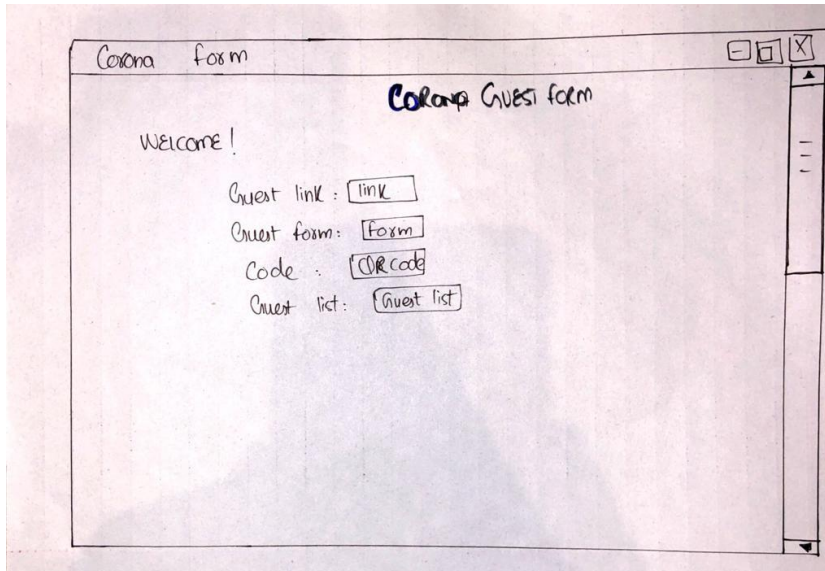 Corona form
CORONA GUEST FORM
WELCOME!
Guest link : link
Guest form: Form
Code : QR code
Guest list: Guest list